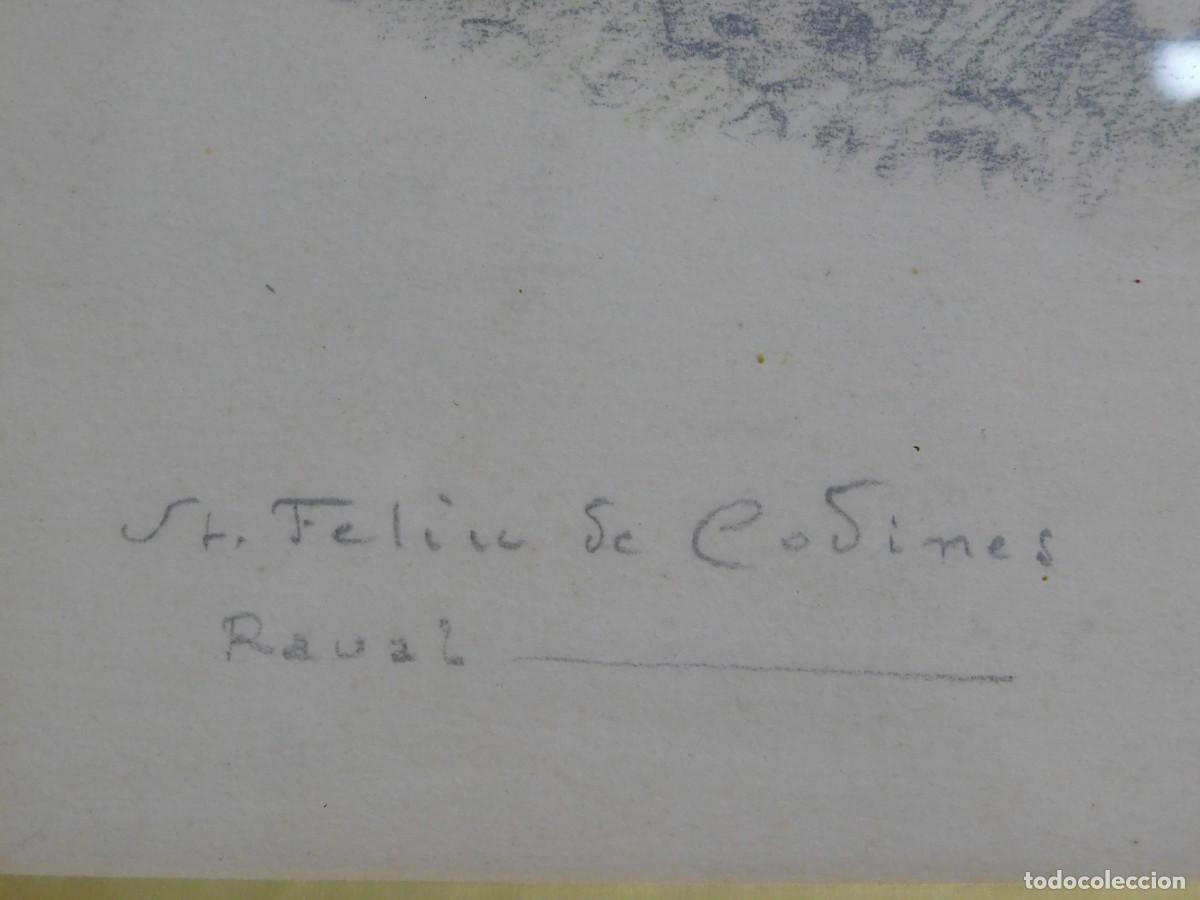 St. Feliu de Codines
Raval
todocoleccion